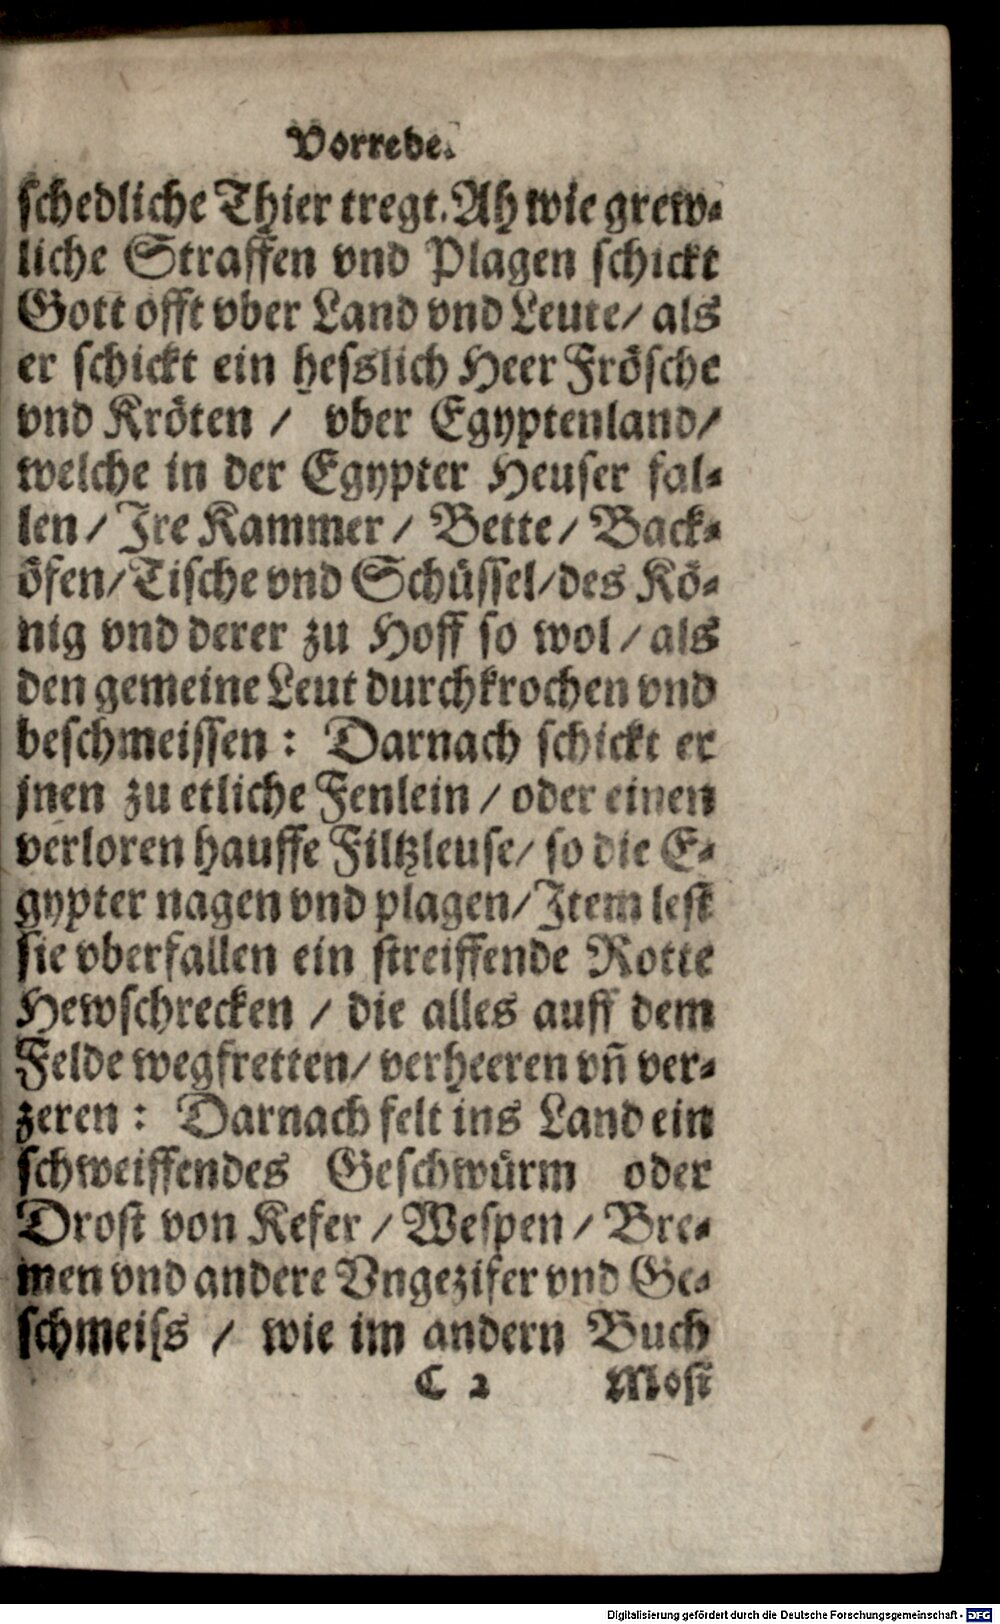 Vorrede.
schedliche Thier tregt. Ah wie grew-
liche Straffen vnd Plagen schickt
Gott offt vber Land vnd Leute/ als
er schickt ein hesslich Heer Frösche
vnd Kröten / vber Egyptenland/
welche in der Egypter Heuser fal-
len / Ire Kammer / Bette / Back-
öfen/ Tische vnd Schüssel/ des Kö-
nig vnd derer zu Hoff so wol / als
den gemeine Leut durchkrochen vnd
beschmeissen : Darnach schickt er
jnen zu etliche Fenlein / oder einen
verloren hauffe Filtzleuse/ so die E-
gypter nagen vnd plagen/ Item lest
sie vberfallen ein streiffende Rotte
Hewschrecken / die alles auff dem
Felde wegfretten/ verheeren vñ ver-
zeren : Darnach felt ins Land ein
schweiffendes Geschwürm oder
Drost von Kefer / Wespen / Bre-
men vnd andere Vngezifer vnd Ge-
schmeiss / wie im andern Buch
C 2 Mosi
Digitalisierung gefördert durch die Deutsche Forschungsgemeinschaft - DFG